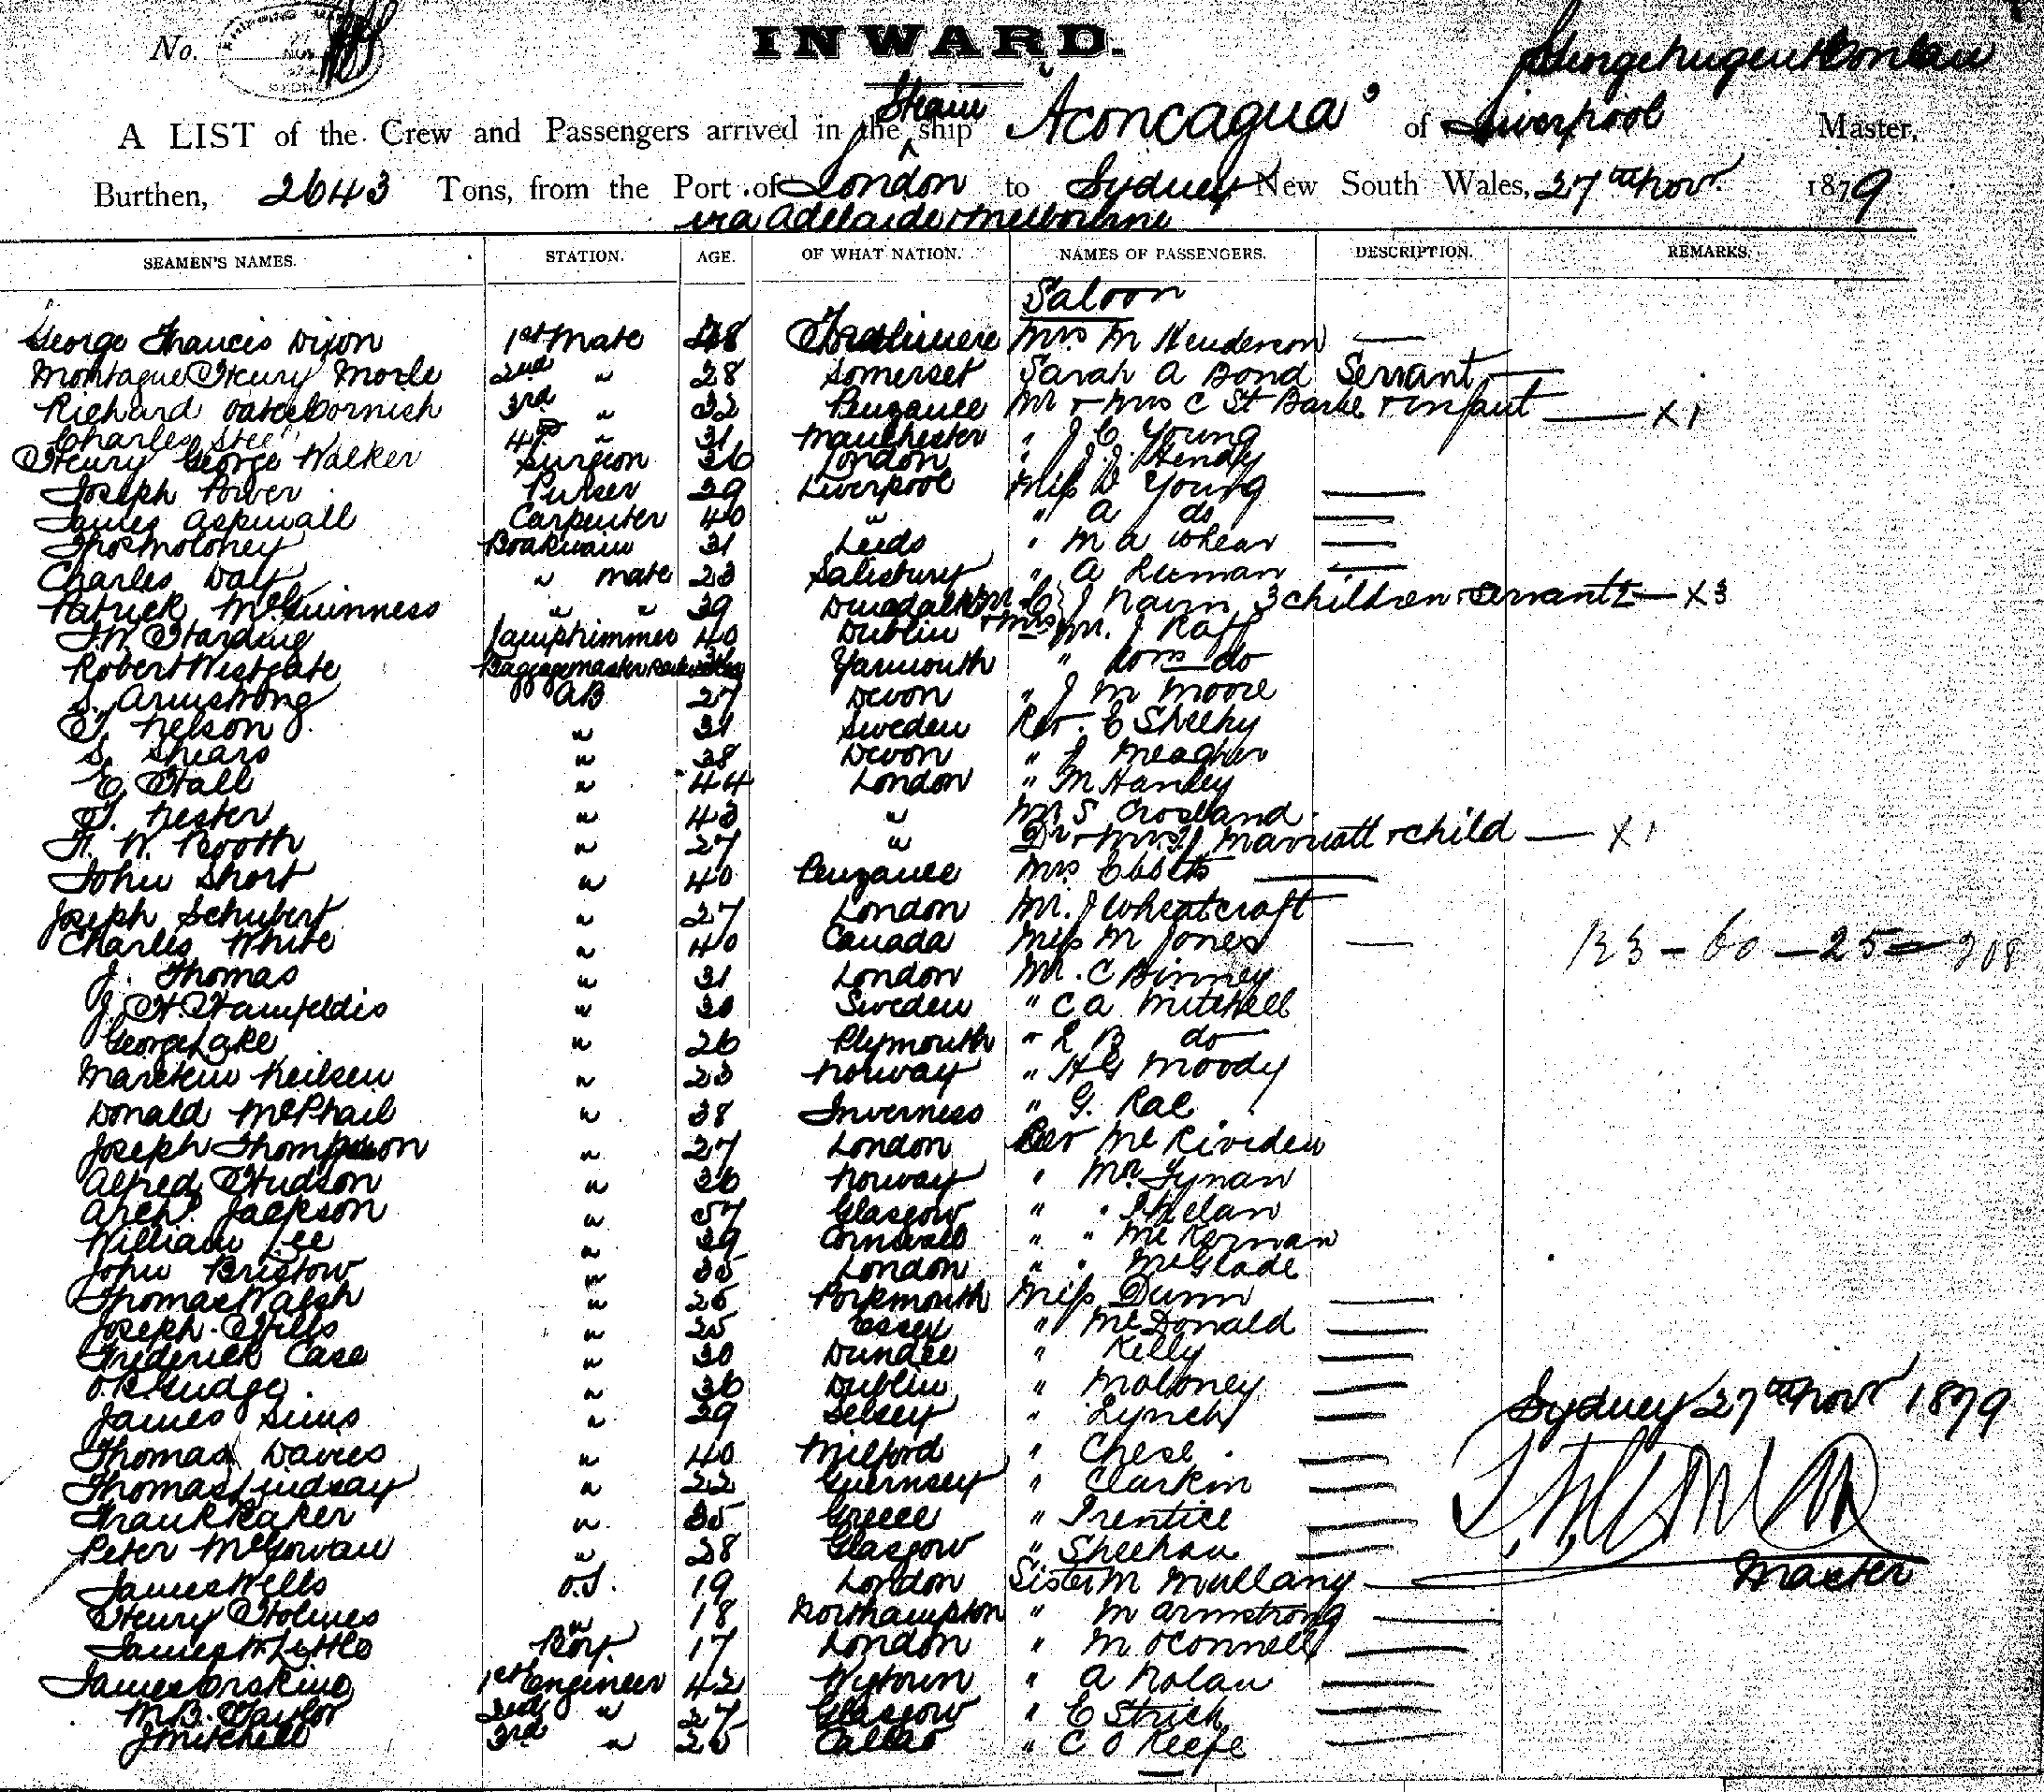 No.
INWARD.
Steam
A LIST of the Crew and Passengers arrived in the ship "Aconcagua" of Liverpool Master,
Burthen, 2643 Tons, from the Port of London to Sydney New South Wales, 27th Novr 1879
via Adelaide & Melbourne
SEAMEN'S NAMES. STATION. AGE. OF WHAT NATION. NAMES OF PASSENGERS. DESCRIPTION. REMARKS.
Saloon
George Francis Dixon 1st Mate Mrs M Henderson —
Montague Henry Morle 2nd " 28 Somerset Sarah A Bond Servant —
Richard Oates Cornish 3rd " 32 Penzance Mr & Mrs C St Barbe & infant — X1
Charles Steel 4th " 31 Manchester " J C Young
Henry George Walker Surgeon 26 London " J J Hendy
Joseph Power Purser 29 Liverpool Miss D Young —
James Aspinall Carpenter 40 " " A do —
Thos Moloney Boatswain 31 Leeds " M A Whear —
Charles Daly " Mate 23 Salisbury " A Leeman —
Patrick McGuinness " " 39 Dundalk Mr & Mrs C J Nairn 3 children & servant — X3
J.W. Harding Lamptrimmer 40 Dublin Mr. J Raff
Robert Westgate Baggagemaster Yarmouth " Tom do
S. Armstrong AB 27 Devon " J M Moore
J. Nelson " 31 Sweden Rev. E Sheehy
S. Shears " 38 Devon " J Meagher
E. Hall " 44 London " M Hanley
J. Nester " 43 " Mr S Crosland
H. W. Booth " 27 " Dr & Mrs J Marriott & child — X1
John Short " 40 Penzance Mrs Ebbetts —
Joseph Schubert " 27 London Mr. J Wheatcroft
Charles White " 40 Canada Miss M Jones —
123 - 60 - 25 = 208
J. Thomas " 31 London Mr. C Binney
J. H. " 30 Sweden " C A Mitchell
George Lake " 26 Plymouth " L B do
Neilsen " 23 Norway " H G Moody
Donald McPhail " 38 Inverness " G. Rae
Joseph Thompson " 27 London Rev
Alfred Hudson " 26 Norway " Mr. Tynan
Archd. Jackson " 57 Glasgow " " Phelan
William Lee " 39 Cornwall " " McKernan
John Bristow " 35 London " " McGlade
Thomas Walsh " 26 Portsmouth Miss Dunn —
Joseph Hills " 25 Essex " McDonald —
Frederick Case " 30 Dundee " Kelly —
" 36 Dublin " Moloney —
James Sims " 39 Selsey " Lynch —
Sydney 27th Novr 1879
Thomas Davies " 40 Milford " Chese —
Thomas Lindsay " 22 Guernsey " Clarkin —
Frank Baker " 35 Greece " Prentice —
Peter McGowan " 28 Glasgow " Sheehan —
Master
James Wells O.S. 19 London Sister M Mullany —
Henry Holmes " 18 Northampton " M Armstrong —
James W Little Boy. 17 London " M OConnell —
James Erskine 1st Engineer 42 " A Nolan —
M.B. Taylor 2nd " 27 Glasgow " E Strich —
J Mitchell 3rd " 25 Callao " C O Keefe —